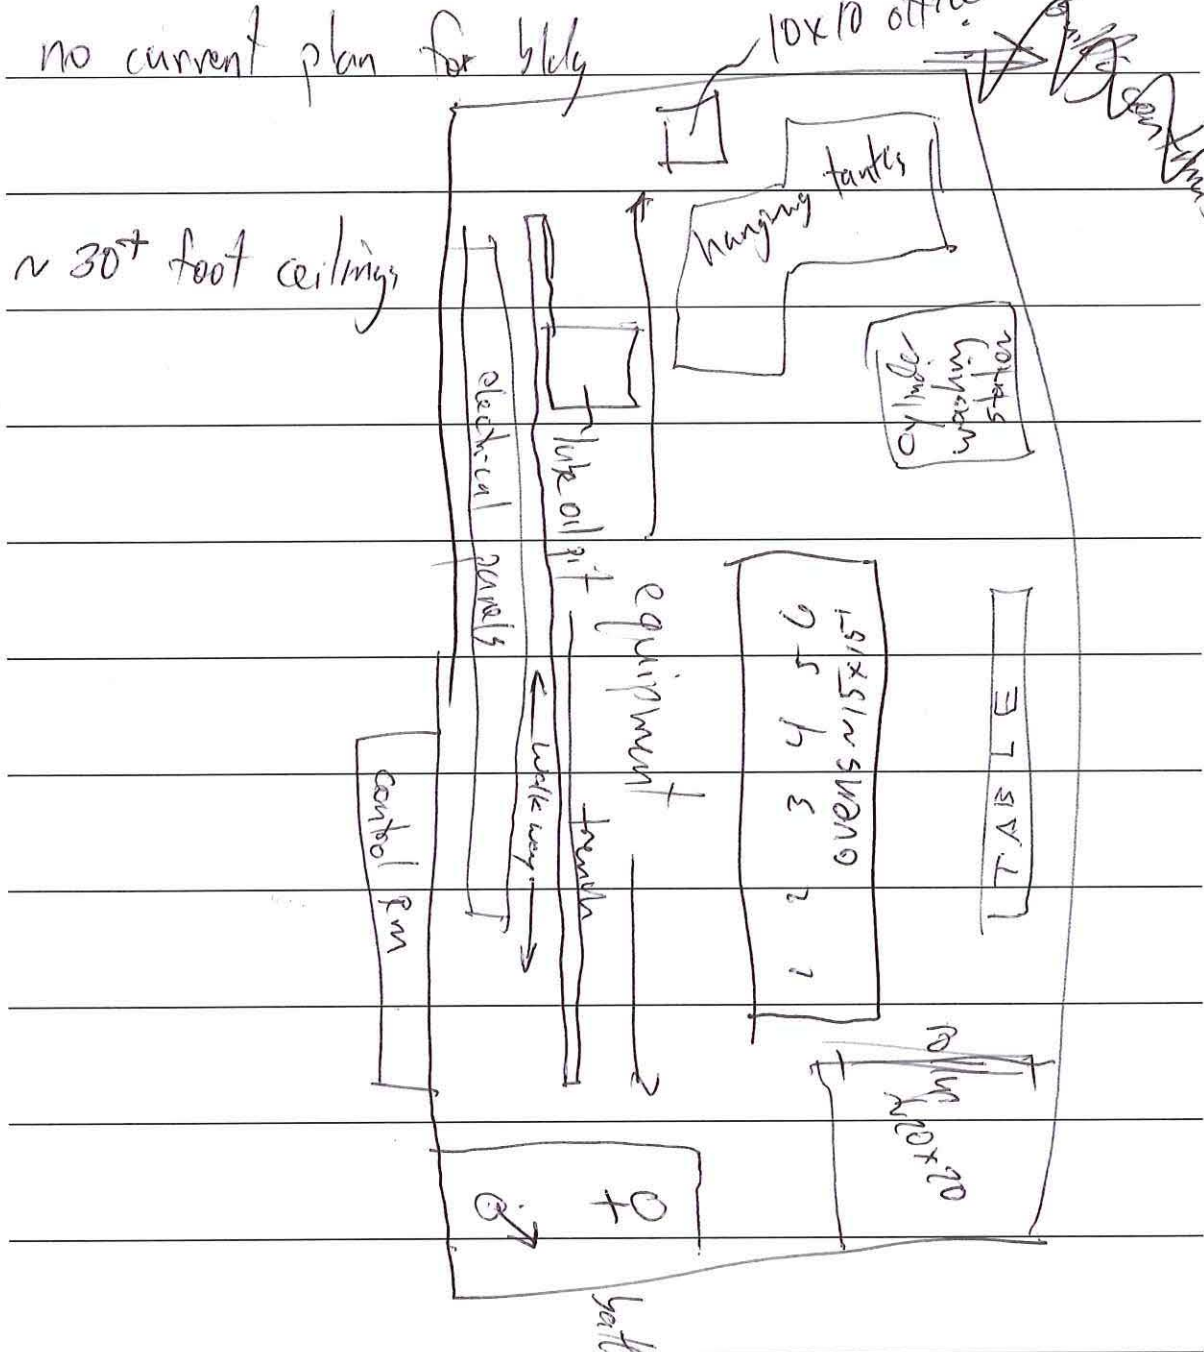 no current plan for bldg
10x10 office
~ 30+ foot ceilings
hanging tanks
cylinder
washing
station
electrical panels
lube oil pit
equipment
6 5 4 3 2 1
ovens ~15x15'
TABLE
← walkway →
trench
control Rm
~20x20
bath